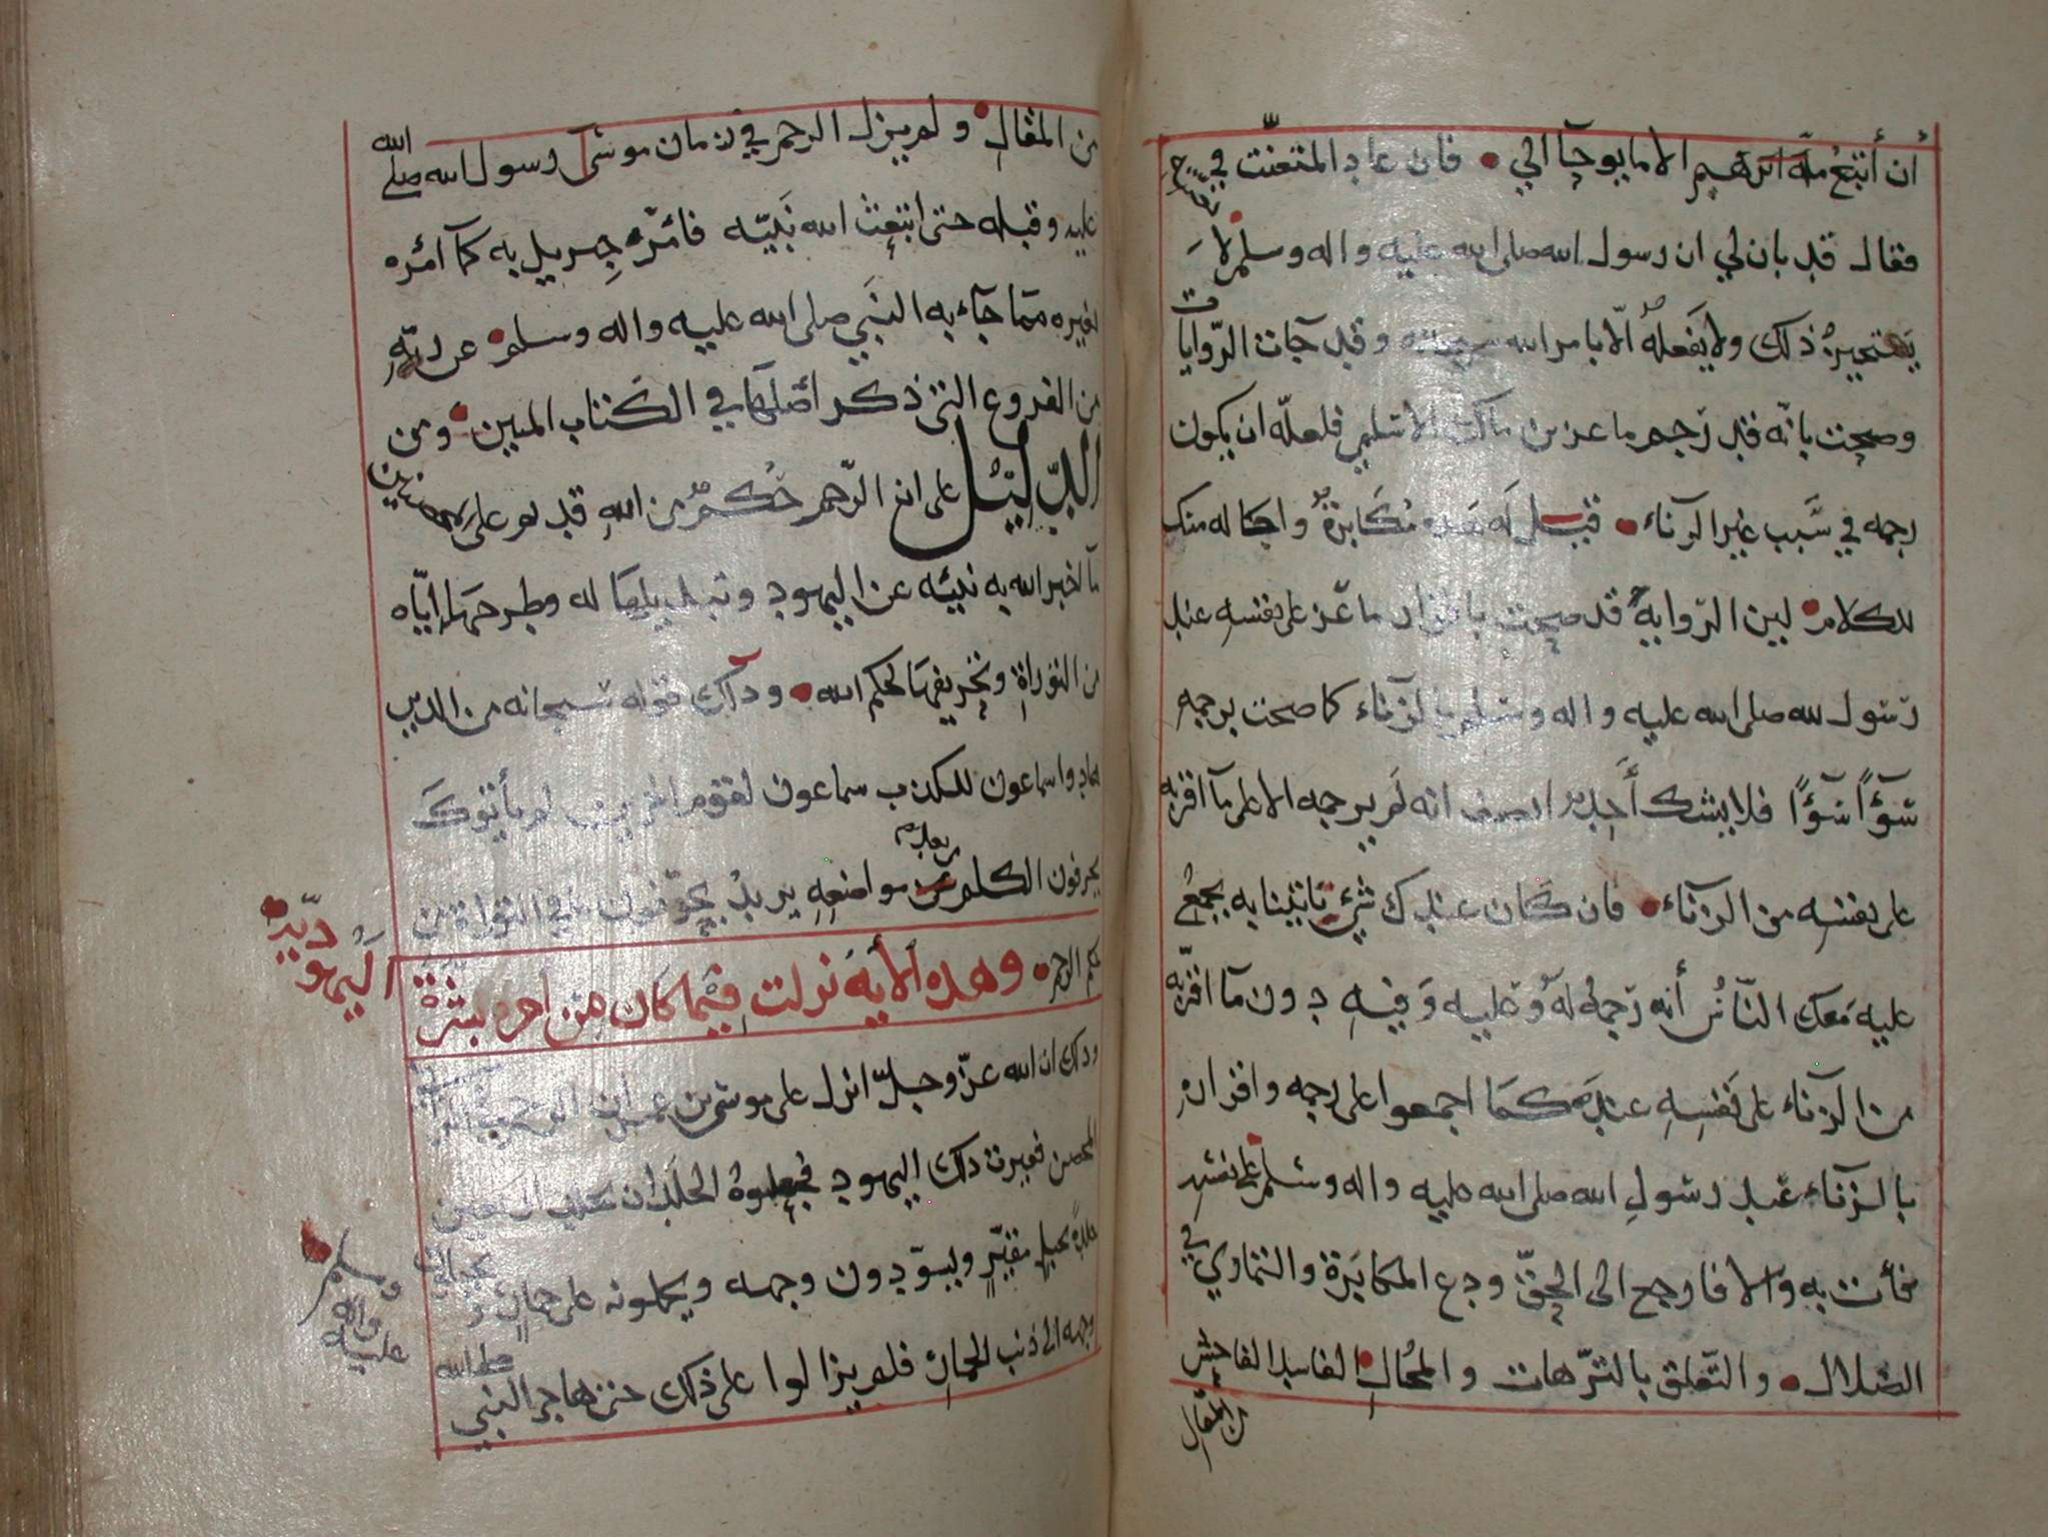 أن أتبع ملة ابرهيم الا ما يوحآ الي • فان عاد المتعنّت في
فقال قد بان لي ان رسول الله صلى الله عليه واله وسلم لا
يستجيز ذلك ولا يفعله الّا بامر الله سبحانه وقد جات الرّوايات
وصحت بانّه قد رجم ماعز بن مالك الاسلمي فلعلّه ان يكون
رجمه في سَبب غير الزناء • قيل له هذه مُكَابرة واحاله منك
للكلام • لين الرّواية قد صحت باقرار ماعز على نفسه عند
رسول الله صلى الله عليه واله وسلم بالزناء كما صحت برجمه
سَوَآءً سَوَآءً فلا يشك أحد انه لم يرجمه الا على ما اقر به
على نفسه من الزناء • فان كان عندك شيء تاتينا به يجمع
عليه مَعك النّاسُ أنه رجمه له وعليه وَفيه دون مآ اقرّ به
من الزناء على نفسه عنده كما اجمعوا على رجمه واقراره
بالزناء عند رسول الله صلى الله عليه واله وسلم على نفسه
فأت به والا فارجع الى الحقّ ودع المكابرة والتماوي في
الضلال • والتّعلق بالترّهات والمُحال الفاسد الفاحش
من المقال
من المقال • ولم يزل الرجم في زمان موسى رسول الله صلى الله
عليه وقبله حتى ابتعث الله نَبيّه فامَرَه جبريل به كمآ امَره
بغيره ممّا جآء به النَبي صلى الله عليه واله وسلم • عن ربّه
من الفروع التي ذكر أصلها في الكتاب المبين • ومن
الدّليل على ان الرّجم حُكم من الله قديم على المحصنين
مآ اخبر الله به نبيّه عن اليهود وتبديلها له وطرحهآ إيّاه
من التوراة وتحريفها لحكم الله • وذلك قوله سبحانه من الذين
هادوا سماعون للكذب سماعون لقوم اخرين لم يأتوك
يحرفون الكلم من بعد مواضعه يريد يحرّفون ما في التوراة من
حكم الرجم • وهذه الايه نزلت فيما كان من امر بسرة
اليهوديّه •
وذلك ان الله عزّ وجلّ انزل على موسى بن عمران
المحصن فغيرت ذلك اليهود فجعلوه الجلد ان يجلد اربعين
جلدة بحبل مقيّر ويسوّدون وجهه ويحملونه على حمار
وجهه الى ذنب الحمار فلم يزالوا على ذلك حتى هاجر النبي
صلى الله
عليه
واله
وسلم •